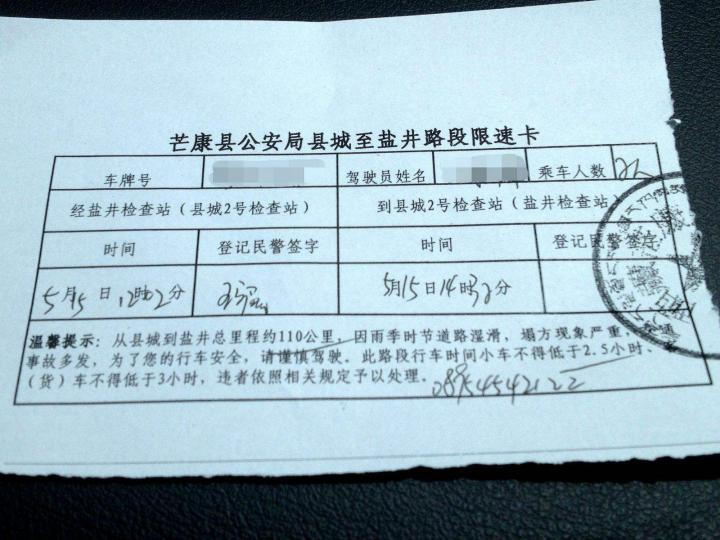 芒康县公安局县城至盐井路段限速卡
车牌号 驾驶员姓名 乘车人数 2人
经盐井检查站（县城2号检查站） 到县城2号检查站（盐井检查站）
时间 登记民警签字 时间 登记民警签字
5月15日12时02分 5月15日14时32分
温馨提示：从县城到盐井总里程约110公里，因雨季时节道路湿滑，塌方现象严重，交通
事故多发，为了您的行车安全，请谨慎驾驶。此路段行车时间小车不得低于2.5小时、客
（货）车不得低于3小时，违者依照相关规定予以处理。
08954542122